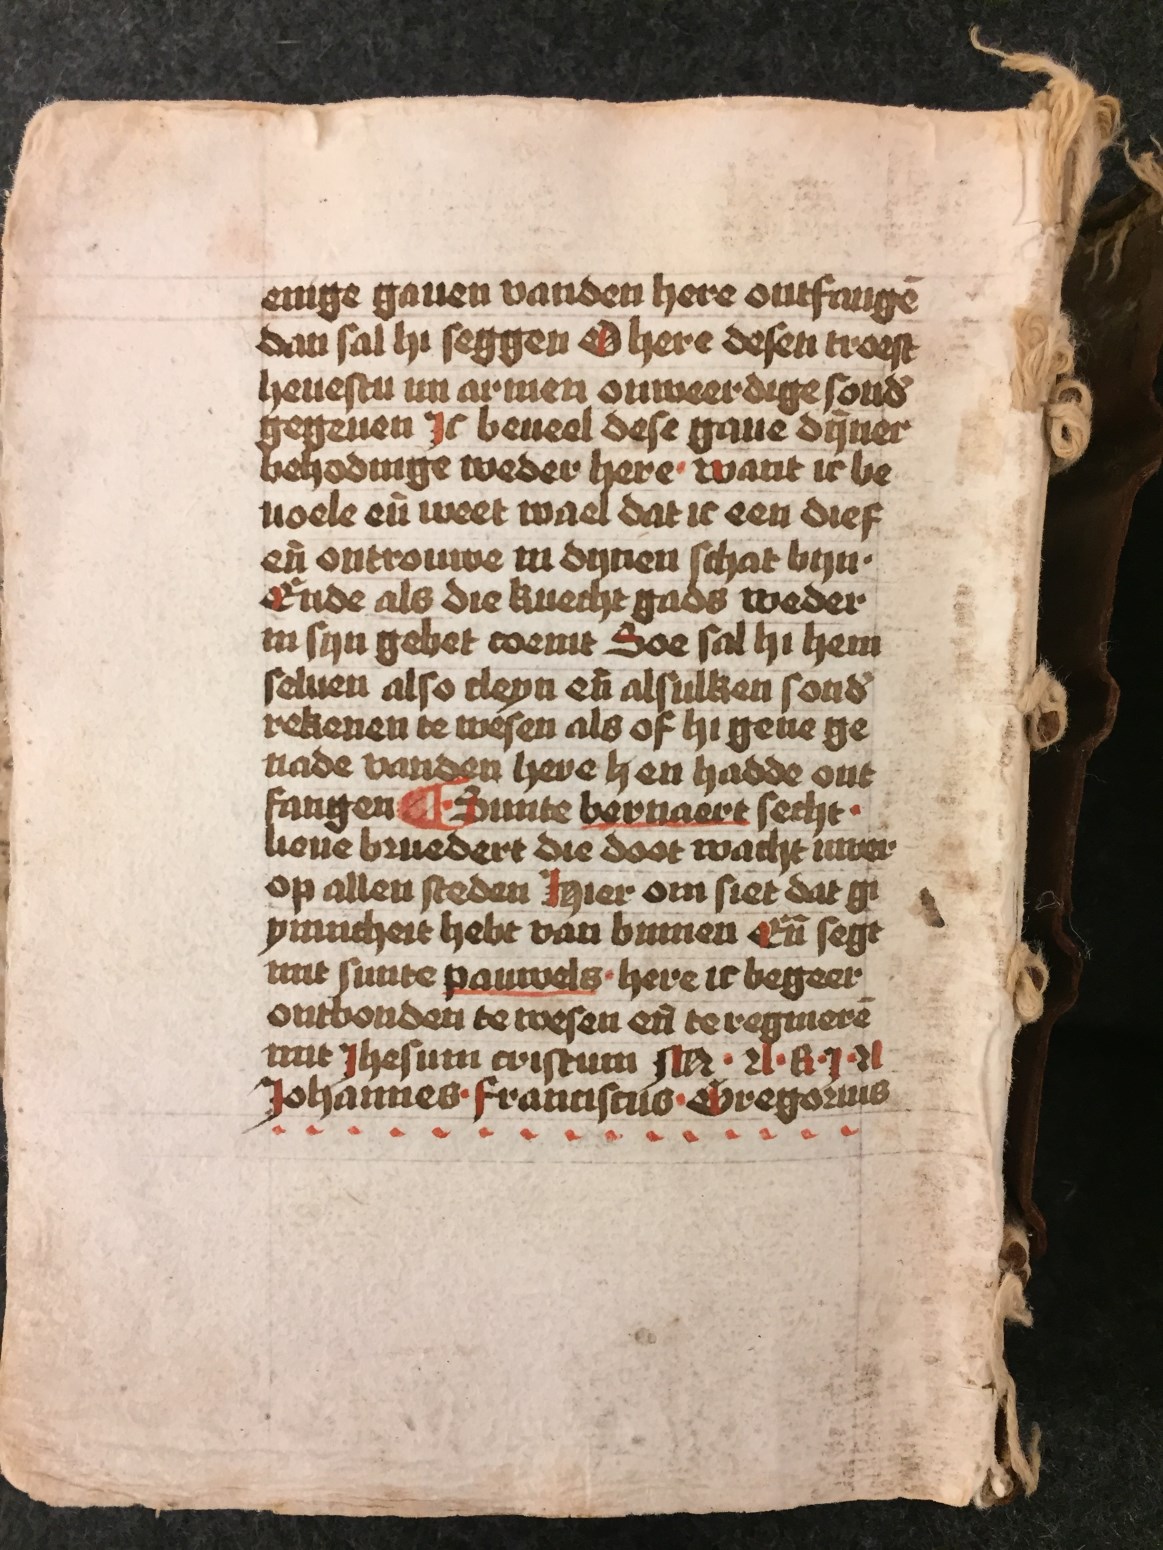 enige gauen vanden here ontfangē
dan sal hi seggen O here desen troest
heuestu mi armen onweerdige sond̕
gegeuen Ic beueel dese gaue dijner
behodinge weder here · want ic be
uoele en̄ weet wael dat ic een dief
en̄ ontrouwe in dijnen schat bijn ·
Ende als die knecht gads weder
in sijn gebet coemt Soe sal hi hem
seluen also cleyn en̄ alsulken sond̕
rekenen te wesen als of hi gene ge
nade vanden here hen hadde ont
fangen ¶ · Sunte bernaert secht ·
lieue bruedert die doot wacht uwer
op allen steden Hier om siet dat gi
ynnicheit hebt van binnen En̄ segt
mit sunte pauwels · here ic begeer
ontbonden te wesen en̄ te regnierē
mit Jhesum cristum · N · R · J · N
Johannes · Franciscus · Gregorius